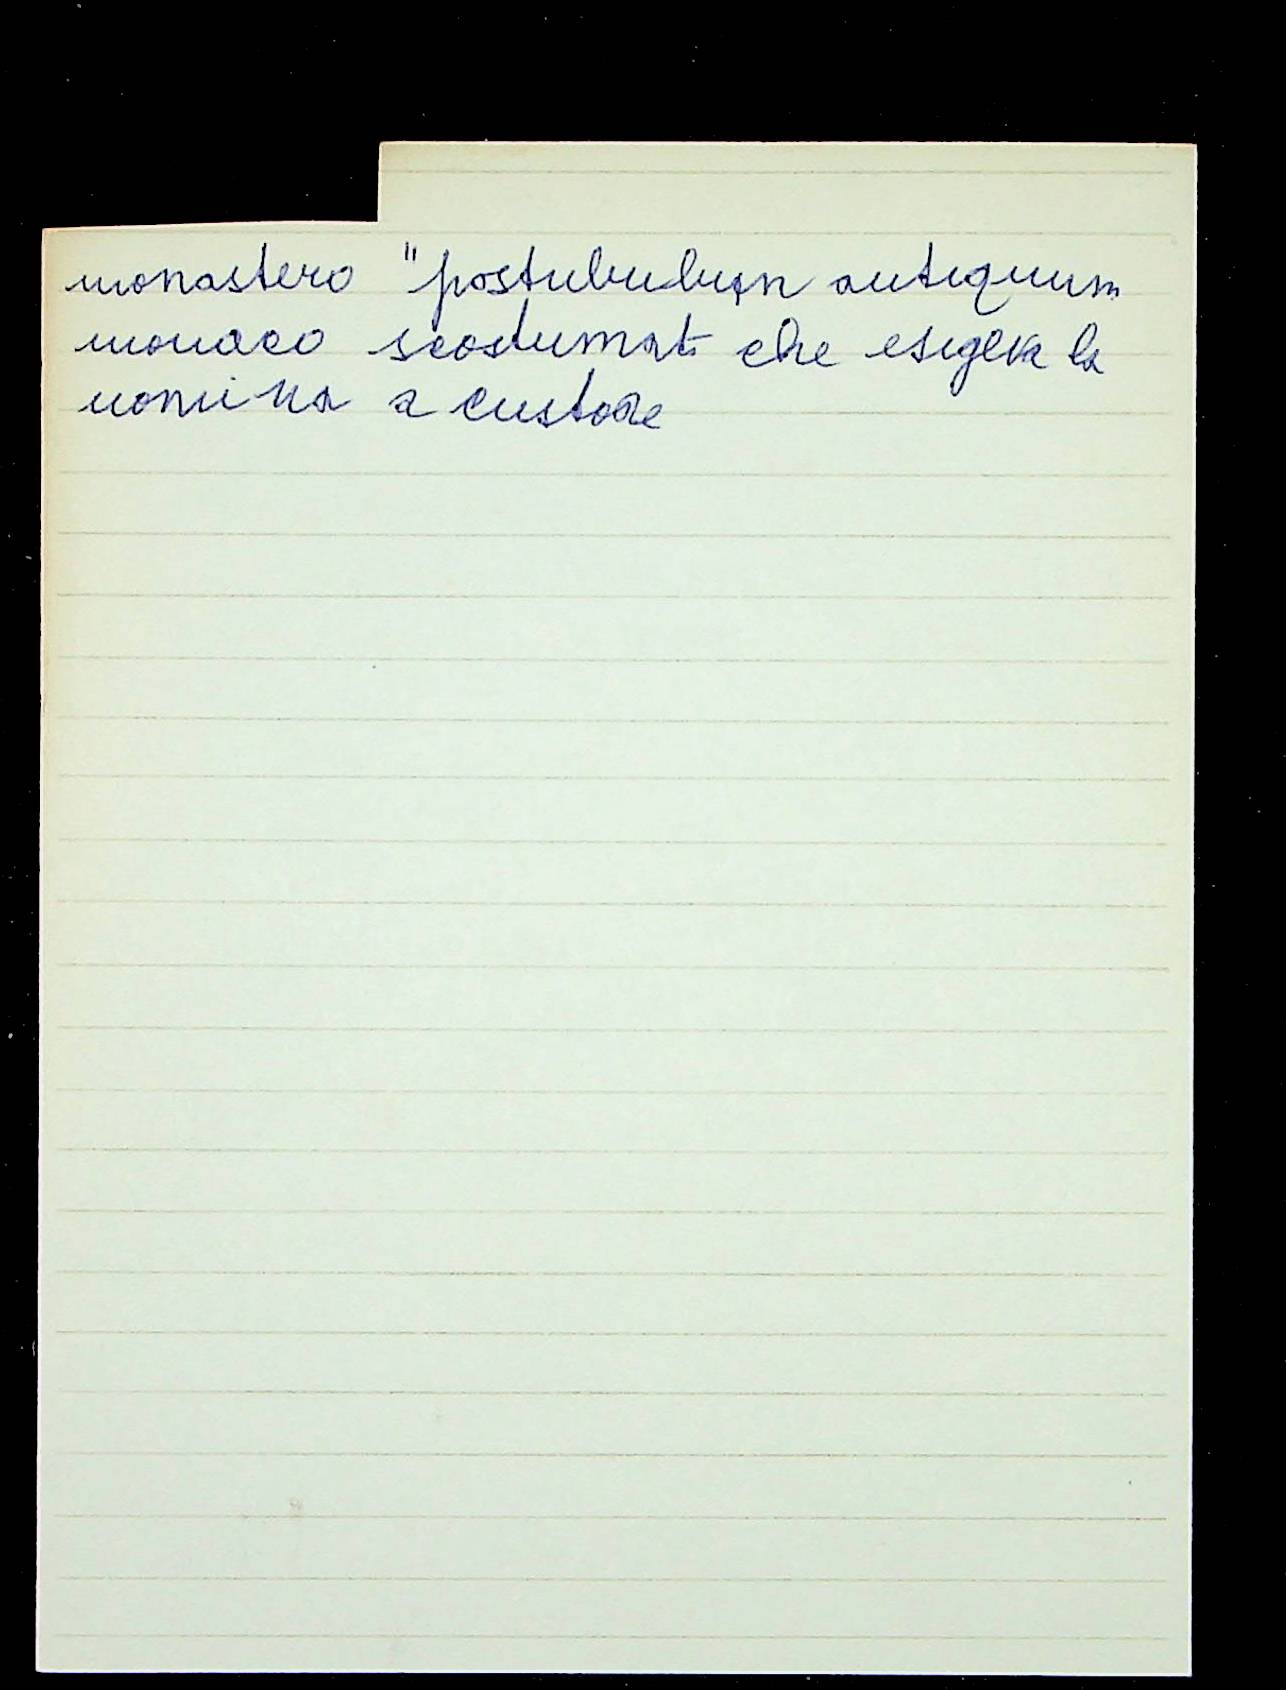 monastero "postribulum antiquum
monaco scostumato che esigeva la
nomina a custode